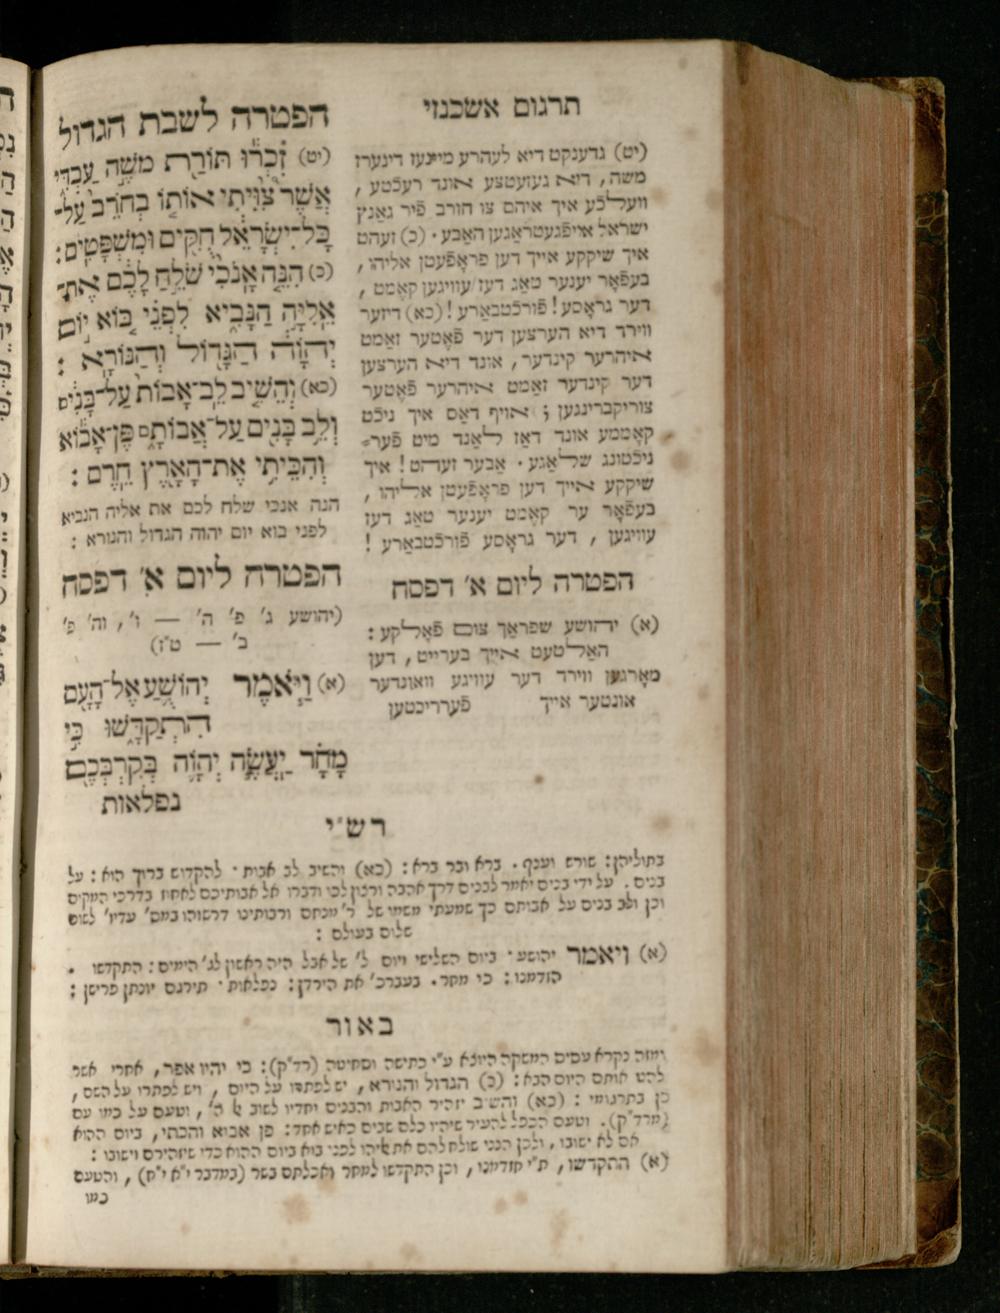 הפטרה לשבת הגדול
(יט) זִכְר֕וּ תּוֹרַ֖ת מֹשֶׁ֣ה עַבְדִּ֑י
אֲשֶׁר֩ צִוִּ֨יתִי אוֹת֤וֹ בְחֹרֵב֙ עַל־
כָּל־יִשְׂרָאֵ֔ל חֻקִּ֖ים וּמִשְׁפָּטִֽים׃
(כ) הִנֵּ֤ה אָֽנֹכִי֙ שֹׁלֵ֣חַ לָכֶ֔ם אֵ֖ת
אֵלִיָּ֣ה הַנָּבִ֑יא לִפְנֵ֗י בּ֚וֹא י֣וֹם
יְהוָ֔ה הַגָּד֖וֹל וְהַנּוֹרָֽא׃
(כא) וְהֵשִׁ֤יב לֵב־אָבוֹת֙ עַל־בָּנִ֔ים
וְלֵ֥ב בָּנִ֖ים עַל־אֲבוֹתָ֑ם פֶּן־אָב֕וֹא
וְהִכֵּיתִ֥י אֶת־הָאָ֖רֶץ חֵֽרֶם׃
הנה אנכי שלח לכם את אליה הנביא
לפני בוא יום יהוה הגדול והנורא :
הפטרה ליום א' דפסח
(יהושע ג' פ' ה' — ו', וה' פ'
ב' — ט"ז)
(א) וַיֹּ֧אמֶר יְהוֹשֻׁ֛עַ אֶל־הָעָ֖ם
הִתְקַדָּ֑שׁוּ כִּ֣י
מָחָ֗ר יַעֲשֶׂ֧ה יְהוָ֛ה בְּקִרְבְּכֶ֖ם
נפלאות
תרגום אשכנזי
(יט) גדענקט דיא לעהרע מיינעז דיענערז
משה, דיא געזעטצע אונד רעכטע,
וועלכע איך איהם צו חורב פיר גאנץ
ישראל אויפגעטראגען האבע. (כ) זעהט
איך שיקקע אייך דען פראפעטן אליהו,
בעפאר יענער טאג דעז עוויגען קאמט,
דער גראסע! פורכטבארע! (כא) דיזער
ווירד דיא הערצען דער פאטער זאמט
איהרער קינדער, אונד דיא הערצען
דער קינדער זאמט איהרער פאטער
צוריקברינגען; אויף דאס איך ניכט
קאממע אונד דאז לאנד מיט פער־
ניכטונג שלאגע. אבער זעהט! איך
שיקקע אייך דען פראפעטן אליהו,
בעפאר ער קאמט יענער טאג דעז
עוויגען, דער גראסע פורכטבארע!
הפטרה ליום א' דפסח
(א) יהושע שפראך צום פאלקע:
האלטעט אייך בערייט, דען
מארגען ווירד דער עוויגע וואונדער
אונטער אייך פערריכטען
רש"י
בתוליהן: שורש וענף. ברא ובר ברא: (כא) והשיב לב אבות. להקדוש ברוך הוא: על
בנים. על ידי בנים יאמר לבנים דרך אהבה ורצון לכו ודברו אל אבותיכם לאחוז בדרכי המקום
וכן ולב בנים על אבותם כך שמעתי משמו של ר' מנחם ורבותינו דרשוהו במס' עדיו' לשום
שלום בעולם :
(א) ויאמר יהושע. ביום השלישי ויום ל' של אבל היה ראשון לג' הימים: התקדשו.
הזדמנו: כי מחר. בעברכ' את הירדן: נפלאות. תירגם יונתן פרישן:
באור
ומזה נקרא עסיס המשקה היוצא ע"י כתישה וסחיטה (רד"ק): כי יהיו אפר, אחרי אשר
להט אותם היום הבא: (כ) הגדול והנורא, יש לפתרו על היום, ויש לפתרו על השם,
כן בתרגומי: (כא) והשיב יזהיר האבות והבנים יחדיו לשוב אל ה', וטעם על כמו עם
(מרד"ק). וטעם הכפל להעיר שיהיו כלם שבים כאיש אחד: פן אבוא והכתי, ביום ההוא
אם לא ישובו, ולכן הנני שולח להם את אליהו לפני בוא ביום ההוא כדי שיזהירם וישובו:
(א) התקדשו, ת"י אזדמנו, וכן התקדשו למחר ואכלתם בשר (במדבר י"א י"ח), והטעם
כמו